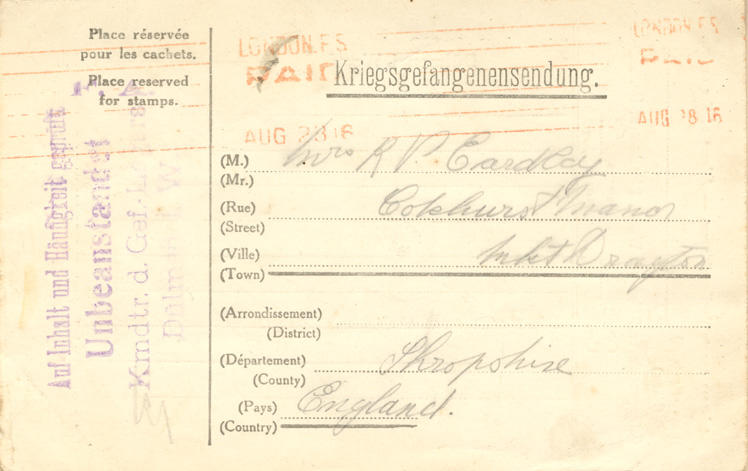 Place réservée
pour les cachets.
Place reserved
for stamps.
LONDON.F.S
PAID
AUG 28 16
LONDON.F.S
PAID
AUG 28 16
Kriegsgefangenensendung.
Auf Inhalt und Häufigkeit geprüft
Unbeanstandet
Kmdtr. d. Gef.
(M.) Mrs R P. Eardley
(Mr.)
(Rue) Colehurst Manor
(Street)
(Ville) Mkt Drayton
(Town)
(Arrondissement)
(District)
(Département) Shropshire
(County)
(Pays) England.
(Country)